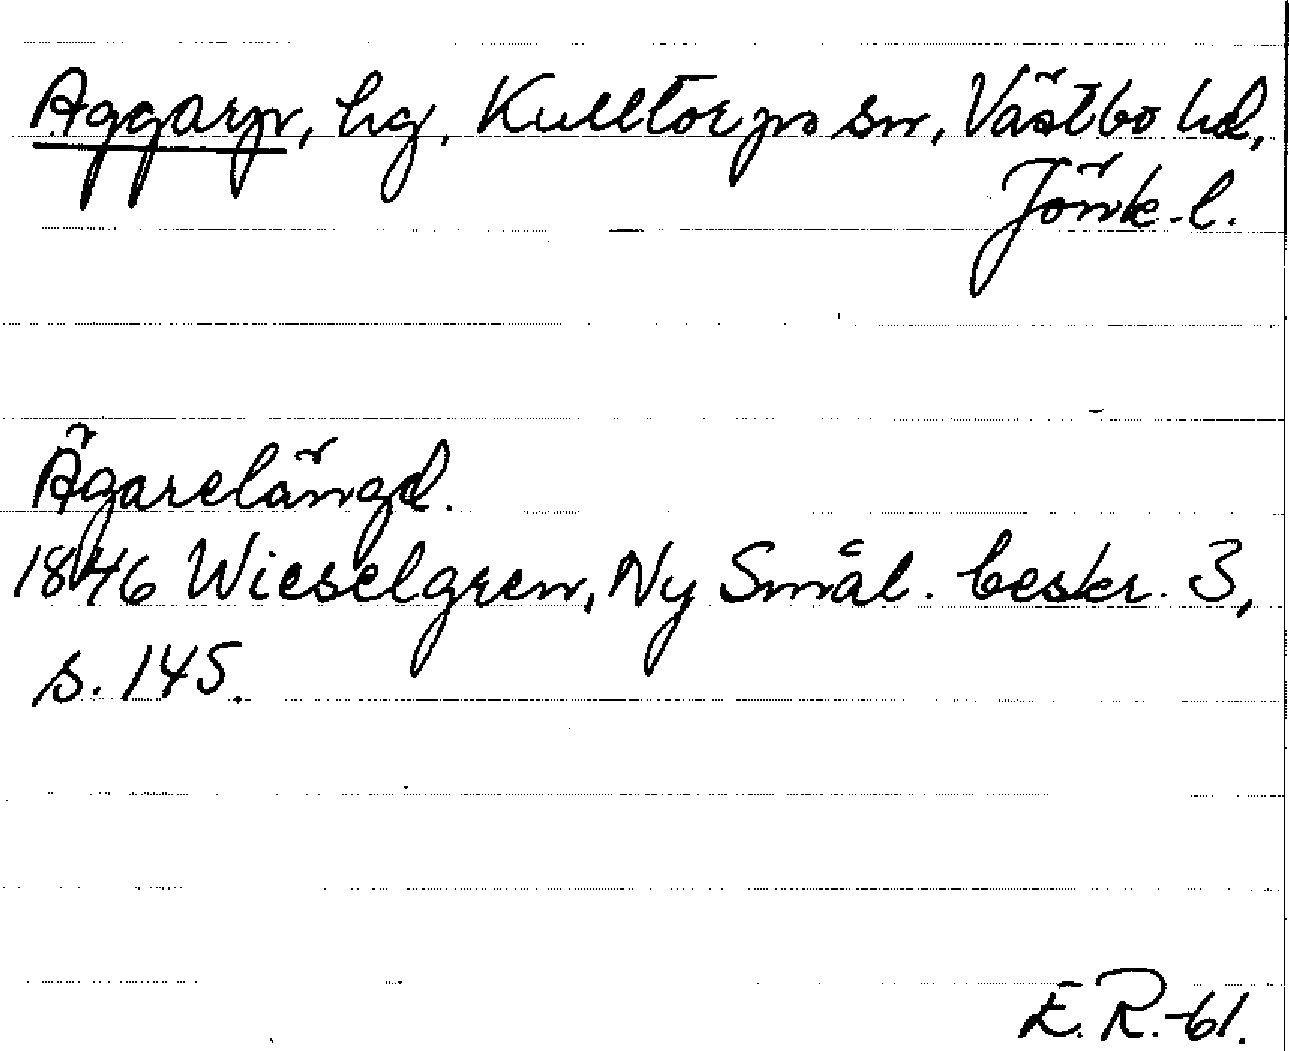 Aggarp, hg, Kulltorps sn, Västbo hd,
Jönk. l.
Ägarelängd.
1846 Wieselgren, Ny Smål. beskr. 3,
s. 145.
E. R. -61.